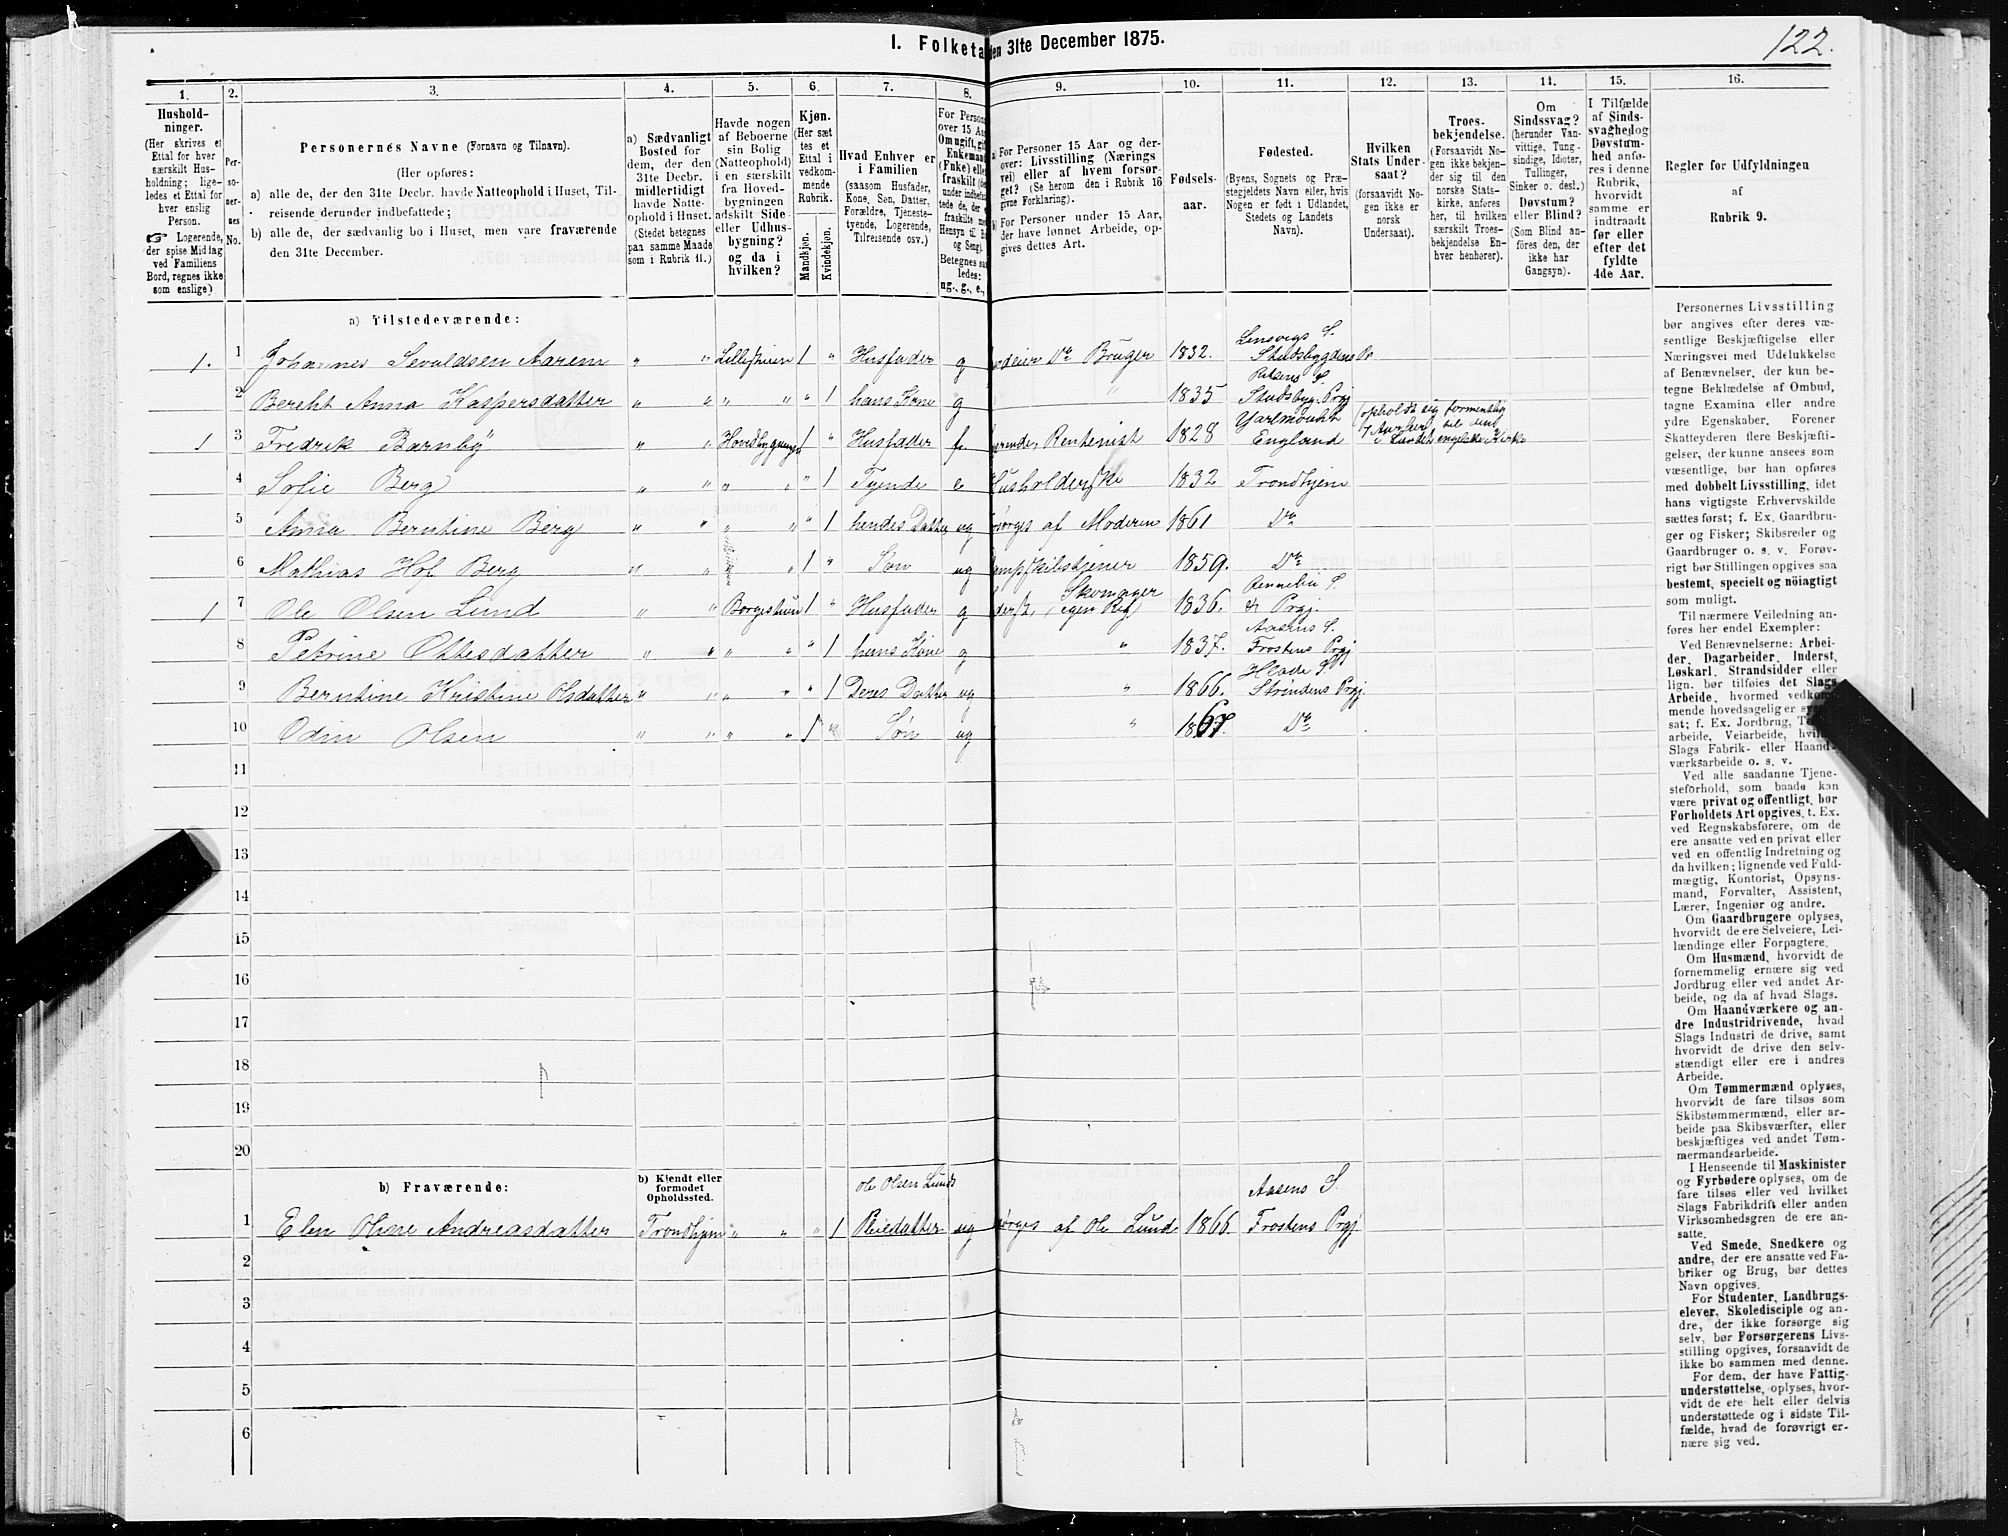 122.
I. Folketa den 31te December 1875.
1. 2. 3. 4. 5. 6. 7. 8. 9. 10. 11. 12. 13. 14. 15. 16.
Hushold-
ninger.
(Her skrives et
Ettal for hver
særskilt Hus-
holdning; lige-
ledes et Ettal for
hver enslig
Person.
☞ Logerende,
der spise Middag
ved Familiens
Bord, regnes ikke
som enslige)
Per-
so-
ner-
nes
No.
Personernes Navne (Fornavn og Tilnavn).
(Her opføres:
a) alle de, der den 31te Decbr. havde Natteophold i Huset, Til-
reisende derunder indbefattede;
b) alle de, der sædvanlig bo i Huset, men vare fraværende
den 31te December.
a) Sædvanligt
Bosted for
dem, der den
31te Decbr.
midlertidigt
havde Natte-
ophold i Huset.
(Stedet betegnes
paa samme Maade
som i Rubrik 11.)
Havde nogen
af Beboerne
sin Bolig
(Natteophold)
i en særskilt
fra Hoved-
bygningen
adskilt Side-
eller Udhus-
bygning?
og da i
hvilken?
Kjøn.
(Her sæt
tes et
Ettal i
vedkom-
mende
Rubrik.
Mandkjøn.
Kvindekjøn.
Hvad Enhver er
i Familien
(saasom Husfader,
Kone, Søn, Datter,
Forældre, Tjeneste-
tyende, Logerende,
Tilreisende osv.)
For Person
over 15 Aa
Om ugift, gif
Enkemaan
(Enke) elle
fraskilt (de
under indbefat-
tede de, der e
fraskilte me
Hensyn til B
og Seng).
Betegnes saa
ledes:
ug., g., e.,
a) For Personer 15 Aar og der-
over: Livsstilling (Nærings
vei) eller af hvem forsør-
get? (Se herom den i Rubrik 16
givne Forklaring).
b) For Personer under 15 Aar,
der have lønnet Arbeide, op-
gives dettes Art.
Fødsels-
aar.
Fødested.
(Byens, Sognets og Præ-
stegjeldets Navn eller, hvis
Nogen er født i Udlandet,
Stedets og Landets
Navn).
Hvilken
Stats Under-
saat?
(forsaavidt No-
gen ikke er
norsk
Undersaat).
Troes-
bekjendelse.
(Forsaavidt No-
gen ikke bekjen-
der sig til den
norske Stats-
kirke, anføres
her, til hvilken
særskilt Troes-
bekjendelse En-
hver henhører).
Om
Sindssvag?
(herunder Van-
vittige, Tung-
sindige, Idioter,
Tullinger,
Sinker o. desl.)
Døvstum?
eller Blind?
(Som Blind an-
føres den, der
ikke har
Gangsyn).
I Tilfælde
af Sinds-
svaghed og
Døvstum-
hed anfø-
res i denne
Rubrik,
hvorvidt
samme er
indtraadt
før eller
efter det
fyldte
4de Aar.
Regler for Udfyldningen
af
Rubrik 9.
a) Tilstedeværende:
1. 1 Johannes Sevaldsen Aarem " " Lillestuen 1 " Husfader g odeier Do Bruger 1832. Lensvegs S. Stadsbygdens Pr
2 Bercht Anna Kaspersdatter " " " " " 1 hans Kone g " 1835 Rissens S. Stadsbyg. Prgj
1 3 Fredrik Barnby " " Hovedbygningen 1 " Husfader f. Rentenist 1828 Yarlmouht England (opholdt sig 7 Aar her i Landet formentlig til den engelske Kirke
4 Sofie Berg " " " " " 1 Tyende e Husholderske 1832 Trondhjem
5 Anna Berntine Berg " " " " " 1 hendes Datter ug orges af Moderen 1861 Do
6 Mathias Hof Berg " " " " 1 " Søn ug ampskibstjener 1859. Do
1 7 Ole Olsen Lund " " Borgestuen 1 " Husfader g Skomager egen Reg 1836. Rennebu S. & Prgj.
8 Petrine Ottesdatter " " " " " 1 hans Kone g " 1837. Aasens S. Frostens Prgj
9 Berntine Kristine Olsdatter " " " " " 1 Deres Datter ug " 1866. Hlade S. Strindens Prgj.
10 Odin Olsen " " " " 1 " Søn ug " 1867. Do
11
12
13
14
15
16
17
18
19
20
b) Fraværende:
b) Kjendt eller
formodet
Opholdssted.
1 Elen Oline Andreasdatter Trondhjem " " " 1 Ole Olsen Lunds Pleiedatter ug sørges af Ole Lund 1866. Aasens S. Frostens Prgj
2
3
4
5
6
Personernes Livsstilling
bør angives efter deres væ-
sentlige Beskjæftigelse eller
Næringsvei med Udelukkelse
af Benævnelser, der kun be-
tegne Beklædelse af Ombud,
tagne Examina eller andre
ydre Egenskaber. Forener
Skatteyderen flere Beskjæfti-
gelser, der kunne ansees som
væsentlige, bør han opføres
med dobbelt Livsstilling, idet
hans vigtigste Erhvervskilde
sættes først; f. Ex. Gaardbru-
ger og Fisker; Skibsreder og
Gaardbruger o. s. v. Forøv-
rigt bør Stillingen opgives saa
bestemt, specielt og nöiagtigt
som muligt.
Til nærmere Veiledning an-
føres her endel Exempler:
Ved Benævnelserne: Arbei-
der, Dagarbeider, Inderst,
Løskarl, Strandsidder eller
lign. bør tilføies det Slags
Arbeide, hvormed vedkom-
mende hovedsagelig er sys
sat; f. Ex. Jordbrug, T
arbeide, Veiarbeide, hvil
Slags Fabrik- eller Haand-
værksarbeide o. s. v.
Ved alle saadanne Tjene-
steforhold, som baade kan
være privat og offentligt, bør
Forholdets Art opgives, t. Ex.
ved Regnskabsførere, om de
ere ansatte ved en privat eller
ved en offentlig Indretning og
da hvilken; lignende ved Fuld-
mægtig, Kontorist, Opsyns-
mand, Forvalter, Assistent,
Lærer, Ingeniør og andre.
Om Gaardbrugere oplyses,
hvorvidt de ere Selveiere, Lei-
lændinge eller Forpagtere.
Om Husmænd, hvorvidt de
fornemmelig ernære sig ved
Jordbrug eller ved andet Ar-
beide, og da af hvad Slags.
Om Haandværkere og an-
dre Industridrivende, hvad
Slags Industri de drive, samt
hvorvidt de drive den selv-
stændigt eller ere i andres
Arbeide.
Om Tømmermænd oplyses,
hvorvidt de fare tilsøs som
Skibstømmermænd, eller ar-
beide paa Skibsværfter, eller
beskjæftiges ved andet Tøm-
mermandsarbeide.
I Henseende til Maskinister
og Fyrbødere oplyses, om de
fare tilsøs eller ved hvilket
Slags Fabrikdrift eller anden
Virksomhedsgren de ere an-
satte.
Ved Smede, Snedkere og
andre, der ere ansatte ved Fa-
briker og Brug, bør dettes
Navn opgives.
For Studenter, Landbrugs-
elever, Skoledisciple og an-
dre, der ikke forsørge sig
selv, bør Forsørgerens Livs-
stilling opgives, forsaavidt de
ikke bo sammen med denne.
For dem, der have Fattig-
understøttelse, oplyses, hvor-
vidt de ere helt eller delvis
understøttede og i sidste Til-
fælde, hvad de forøvrigt er-
nære sig ved.